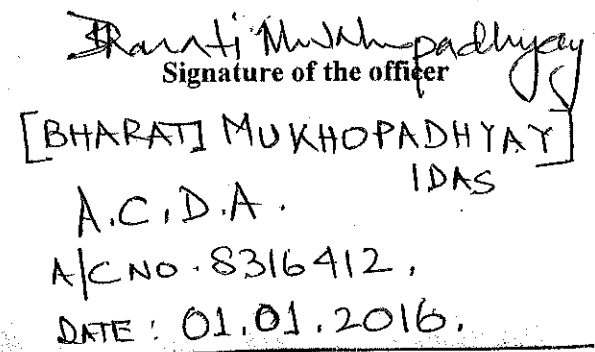 Bharati Mukhopadhyay
Signature of the officer
[BHARATI MUKHOPADHYAY]
IDAS
A.C.D.A.
A/C NO. 8316412,
DATE : 01.01.2016.